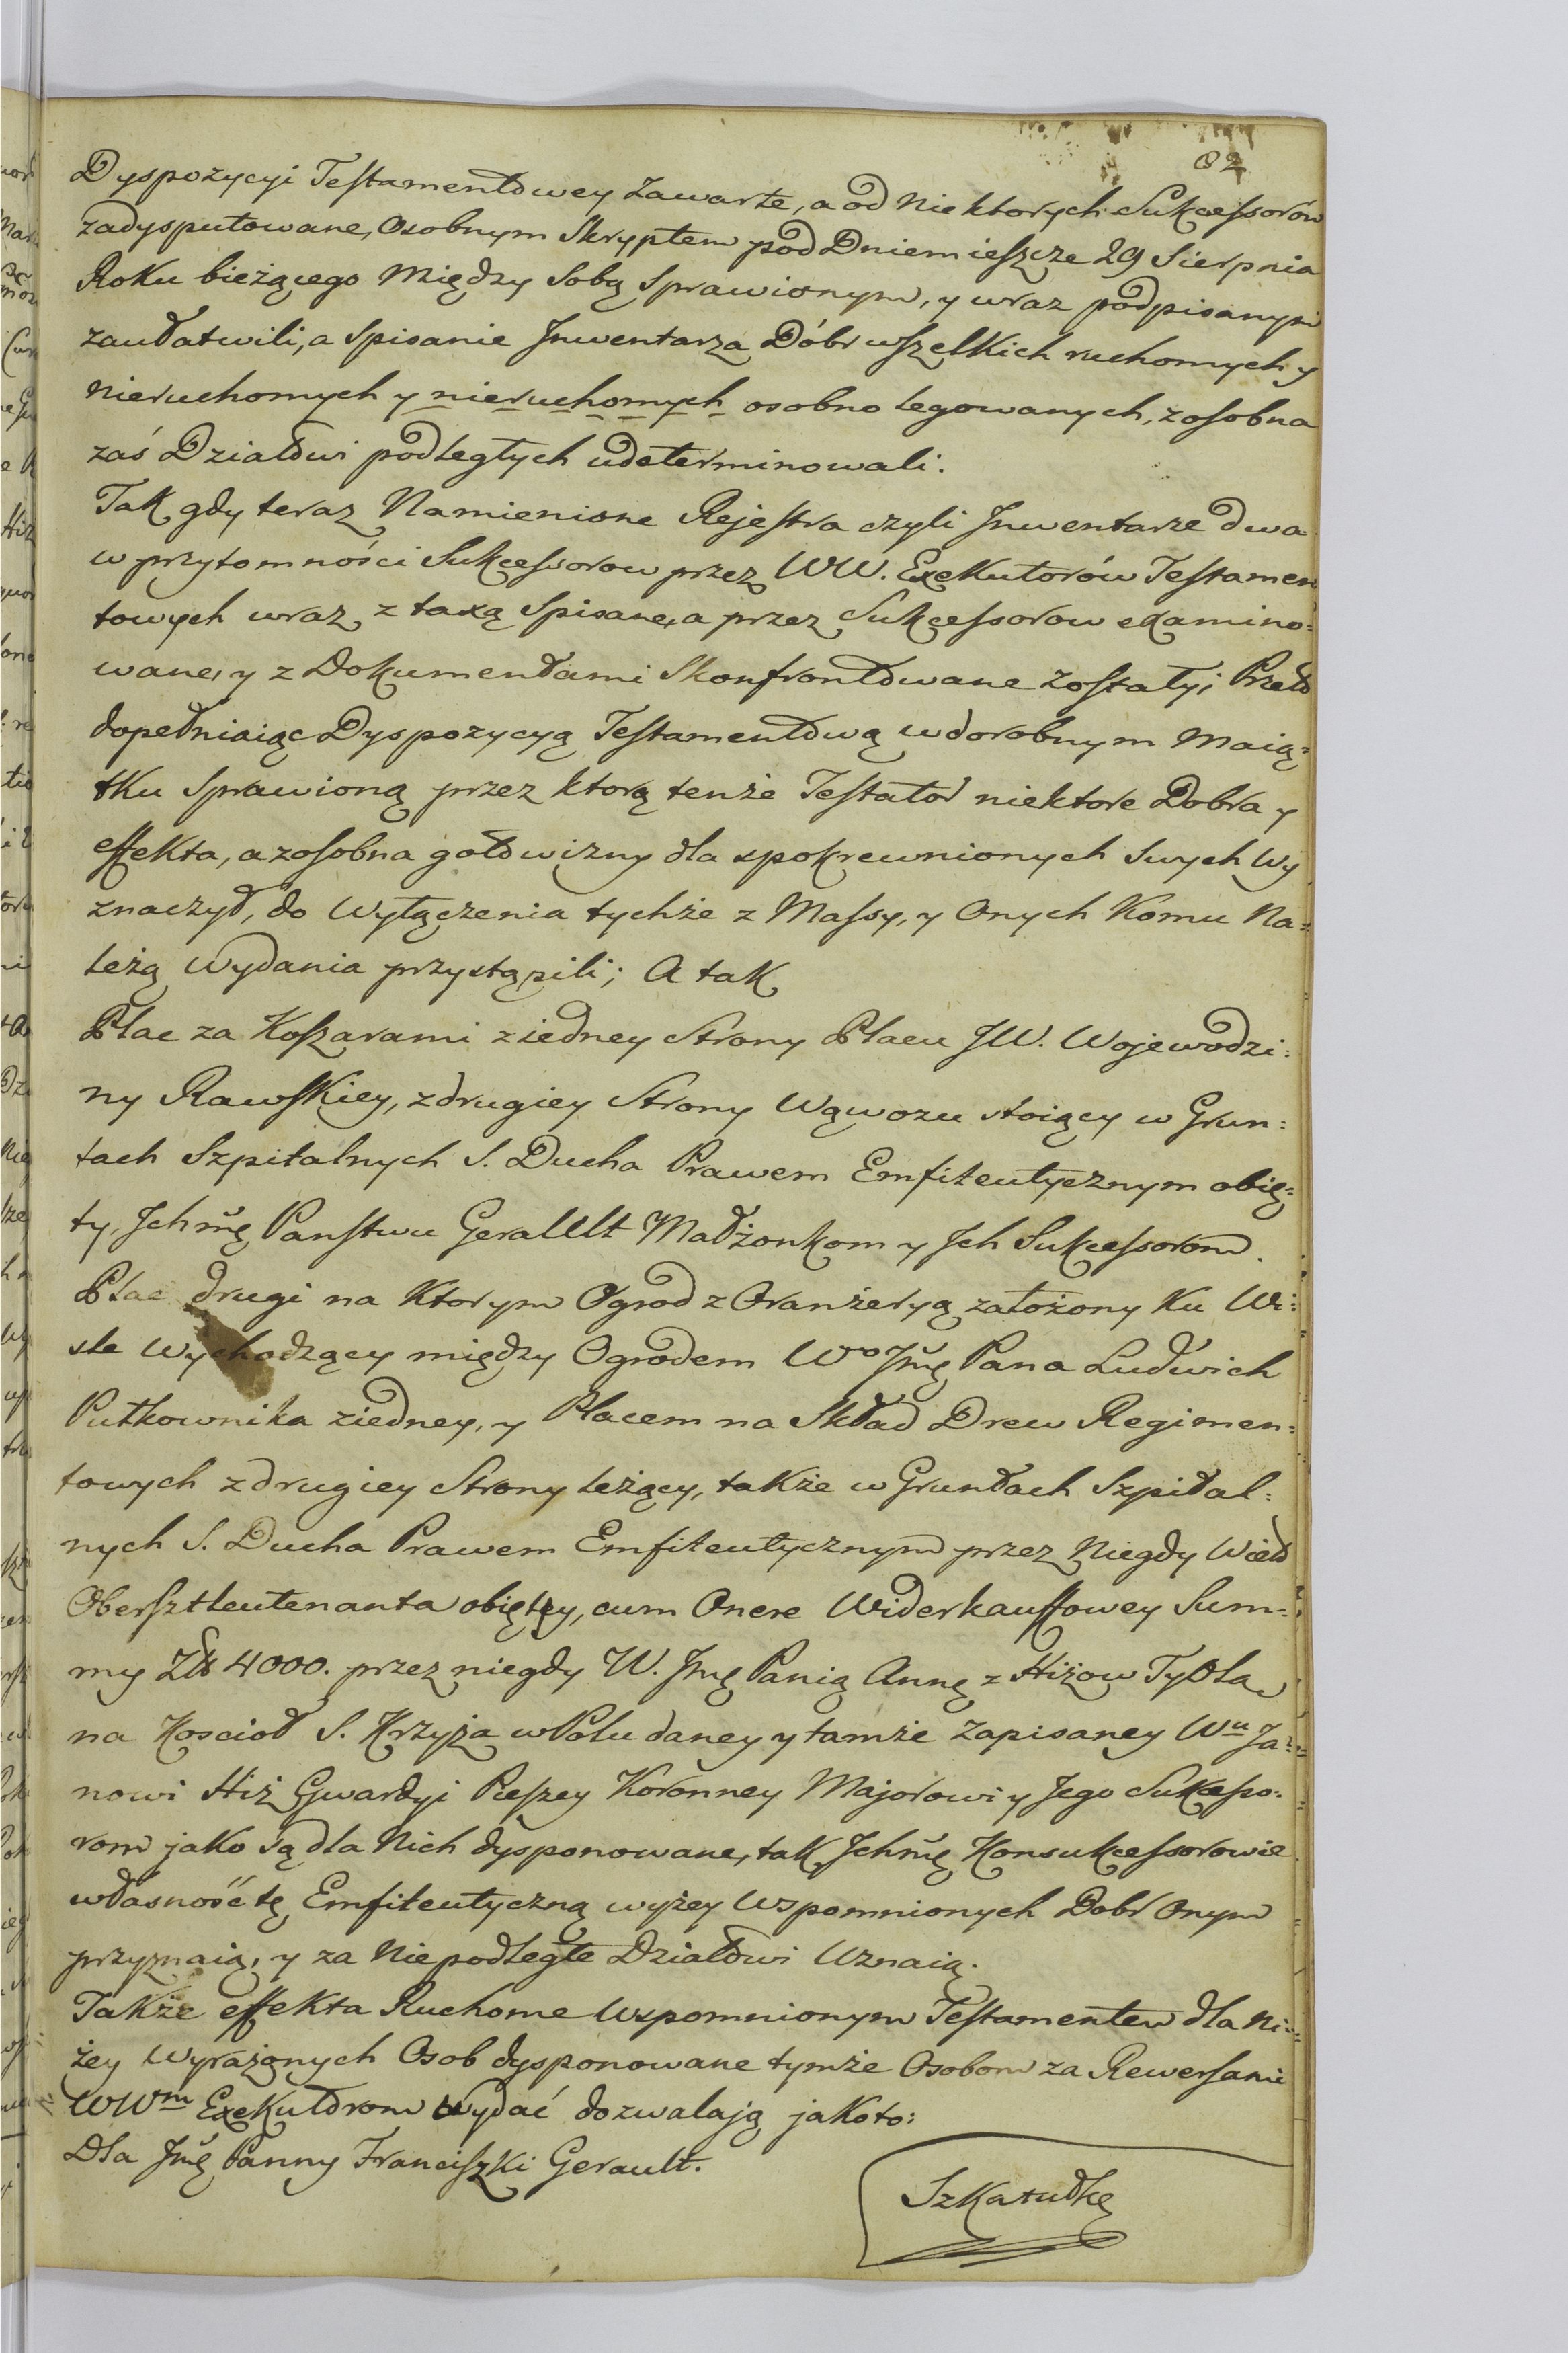 82
Dyspozycyi Testamentowey zawarte, a od niektorych Sukcessorów
zadysputowane, osobnym Skryptem pod Dniem ieszcze 29 Sierpnia
Roku bieżącego między sobą sprawionym, y wraz podpisanym
zaułatwili, a spisanie Inwentarza Dóbr wszelkich ruchomych y
nieruchomych y nieruchomych osobno legowanych, z osobna
zaś Działowi podległych udeterminowali.
Tak gdy teraz Namienione Rejestra czyli Inwentarze dwa
w przytomności Sukcessorow przez WW. Exekutorów Testamen
towych wraz z taxą spisane, a przez Sukcessorow examino=
wane, y z Dokumentami skonfrontowane zostały; Przeto
dopełniaiąc Dyspozycyą Testamentową w dorobnym Maią=
tku sprawioną przez ktorą tenże Testator niektore Dobra y
effekta, a z osobna gotowizny dla spokrewnionych swych wy
znaczył, do wyłączenia tychże z Massy, y onych komu Na=
leżą wydania przystąpili; A tak
Plac za Koszarami z iedney strony Placu JW. Wojewodzi=
ny Rawskiey, z drugiey strony Wąwozu stoiący w Grun=
tach Szpitalnych S. Ducha Prawem Emfiteutycznym obię=
ty, Ichmę Panstwu Gerallt Małżonkom y Ich Sukcessorom.
Plac drugi na ktorym Ogrod z Oranżeryą założony ku Wi=
śle wychodzący między Ogrodem Wo Jmę Pana Ludwich
Pułkownika z iedney, y Placem na Skład Drew Regimen=
towych z drugiey strony leżący, także w Gruntach Szpital=
nych S. Ducha Prawem Emfiteutycznym przez niegdy
Obersztleutenanta obięty, cum Onere Widerkauffowey Sum=
my Zł 4000. przez niegdy W. Jmę Panią Annę z Hiżow
na Kościoł S. Krzyża w Polu daney y tamże zapisaney Wu Ja=
nowi Hiż Gwardyi Pieszey Koronney Majorowi y Jego Sukcesso=
rom jako są dla Nich dysponowane, tak Ichmę Konsukcessorowie
własność tę Emfiteutyczną wyżey wspomnionych Dobr Onym
przyznaią, y za Niepodległe Działowi uznaią.
Także effekta Ruchome wspomnionym Testamentem dla Ni=
żey wyrażonych Osob dysponowane tymże Osobom za Rewersami
WWm Exekutorom wydać dozwalają jako to:
Dla Jmę Panny Franciszki Gerault.
Szkatułkę